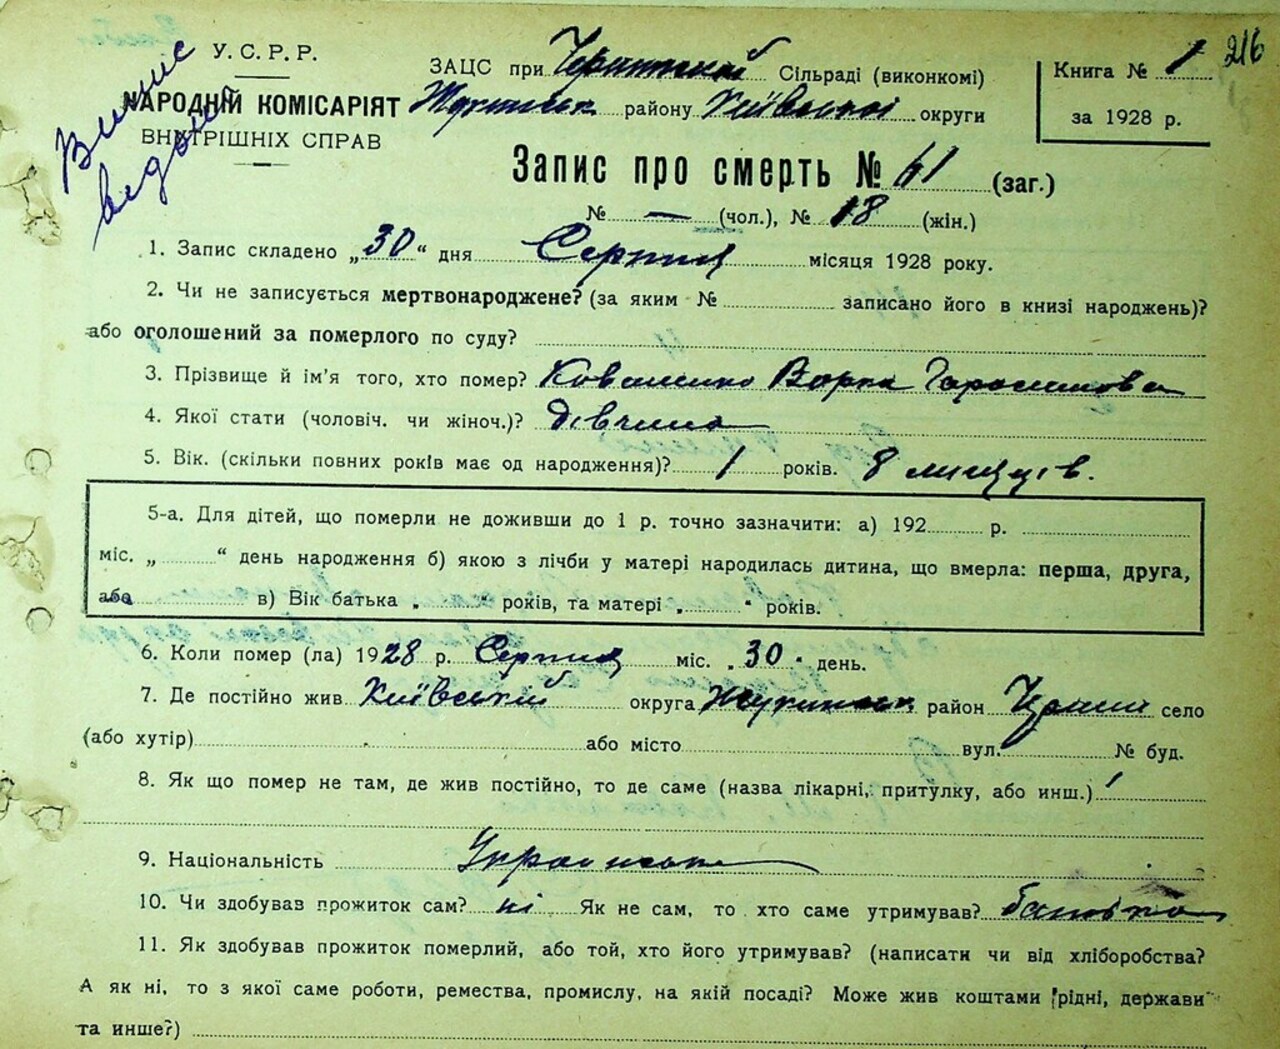 216
У.С.Р.Р.
НАРОДНІЙ КОМІСАРІЯТ
ВНУТРІШНІХ СПРАВ
ЗАЦС при Сільраді (виконкомі)
району Київської округи
Книга № 1
за 1928 р.
Запис про смерть № 61 (заг.)
№ — (чол.), № 18 (жін.)
1. Запис складено „30“ дня Серпня місяця 1928 року.
2. Чи не записується мертвонароджене? (за яким № записано його в книзі народжень)?
або оголошений за померлого по суду?
3. Прізвище й ім'я того, хто помер? Коваленко Варка Гарасимова
4. Якої стати (чоловіч. чи жіноч.)? дівчина
5. Вік. (скільки повних років має од народження)? 1 років. 8 місяців.
5-а. Для дітей, що померли не доживши до 1 р. точно зазначити: а) 192 р.
міс. „ “ день народження б) якою з лічби у матері народилась дитина, що вмерла: перша, друга,
або в) Вік батька „ “ років, та матері „ “ років.
6. Коли помер (ла) 1928 р. Серпня міс. „30“ день.
7. Де постійно жив Київській округа район село
(або хутір) або місто вул. № буд.
8. Як що помер не там, де жив постійно, то де саме (назва лікарні, притулку, або инш.)
9. Національність Українська
10. Чи здобував прожиток сам? ні Як не сам, то хто саме утримував? батько
11. Як здобував прожиток померлий, або той, хто його утримував? (написати чи від хліборобства?
А як ні, то з якої саме роботи, ремества, промислу, на якій посаді? Може жив коштами рідні, держави
та инше?)